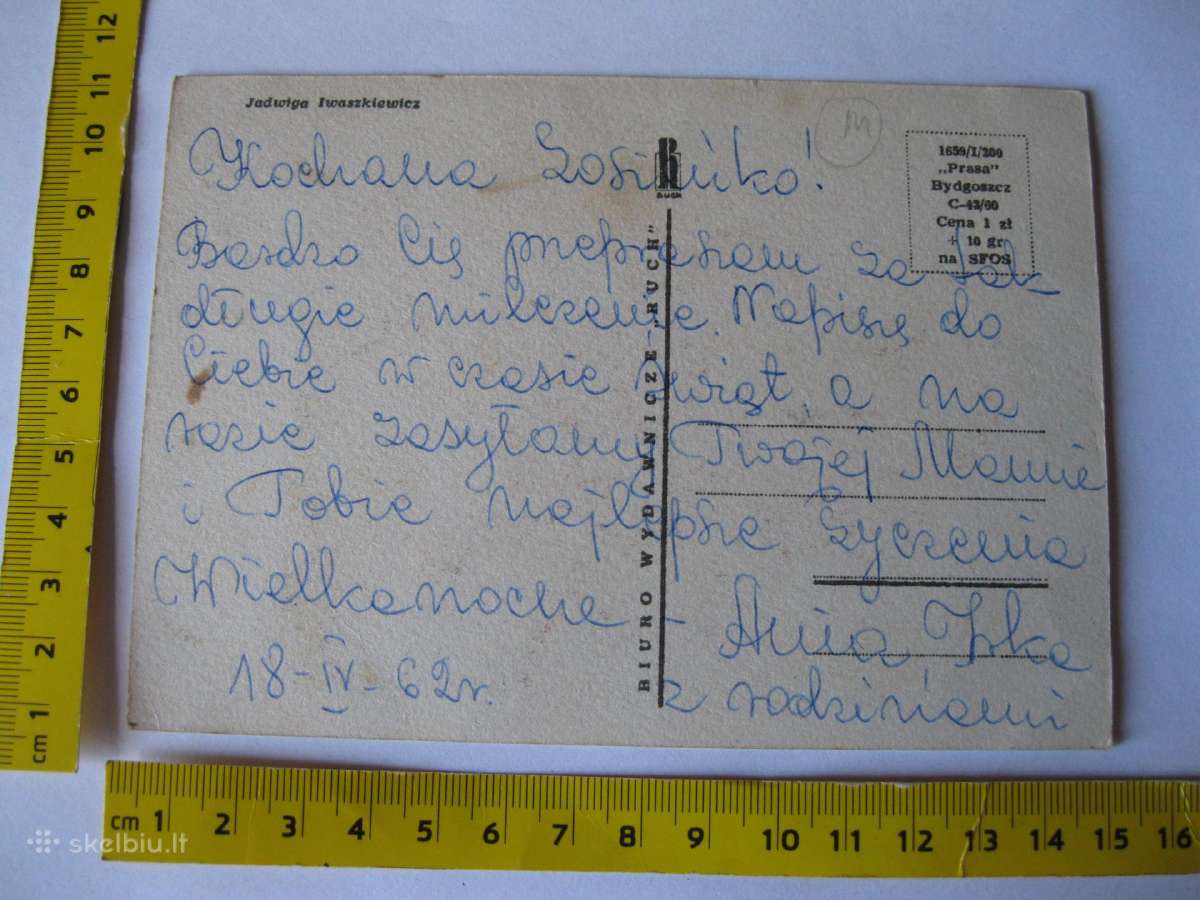 Jadwiga Iwaszkiewicz
M
1659/I/200
„Prasa"
Bydgoszcz
C-43/60
Cena 1 zł
+ 10 gr
na SFOS
R
RUCH
BIURO WYDAWNICZE „RUCH"
Kochana Zosieńko!
Bardzo Cię przepraszam za tak
długie milczenie. Napiszę do
Ciebie w czasie świąt, a na
razie zasyłamy Twojej Mamie
i Tobie najlepsze życzenia
Wielkanocne - Anna
z rodzinami
18-IV-62r.
12
11
10
9
8
7
6
5
4
3
2
1
cm
cm 1 2 3 4 5 6 7 8 9 10 11 12 13 14 15 16
skelbiu.lt